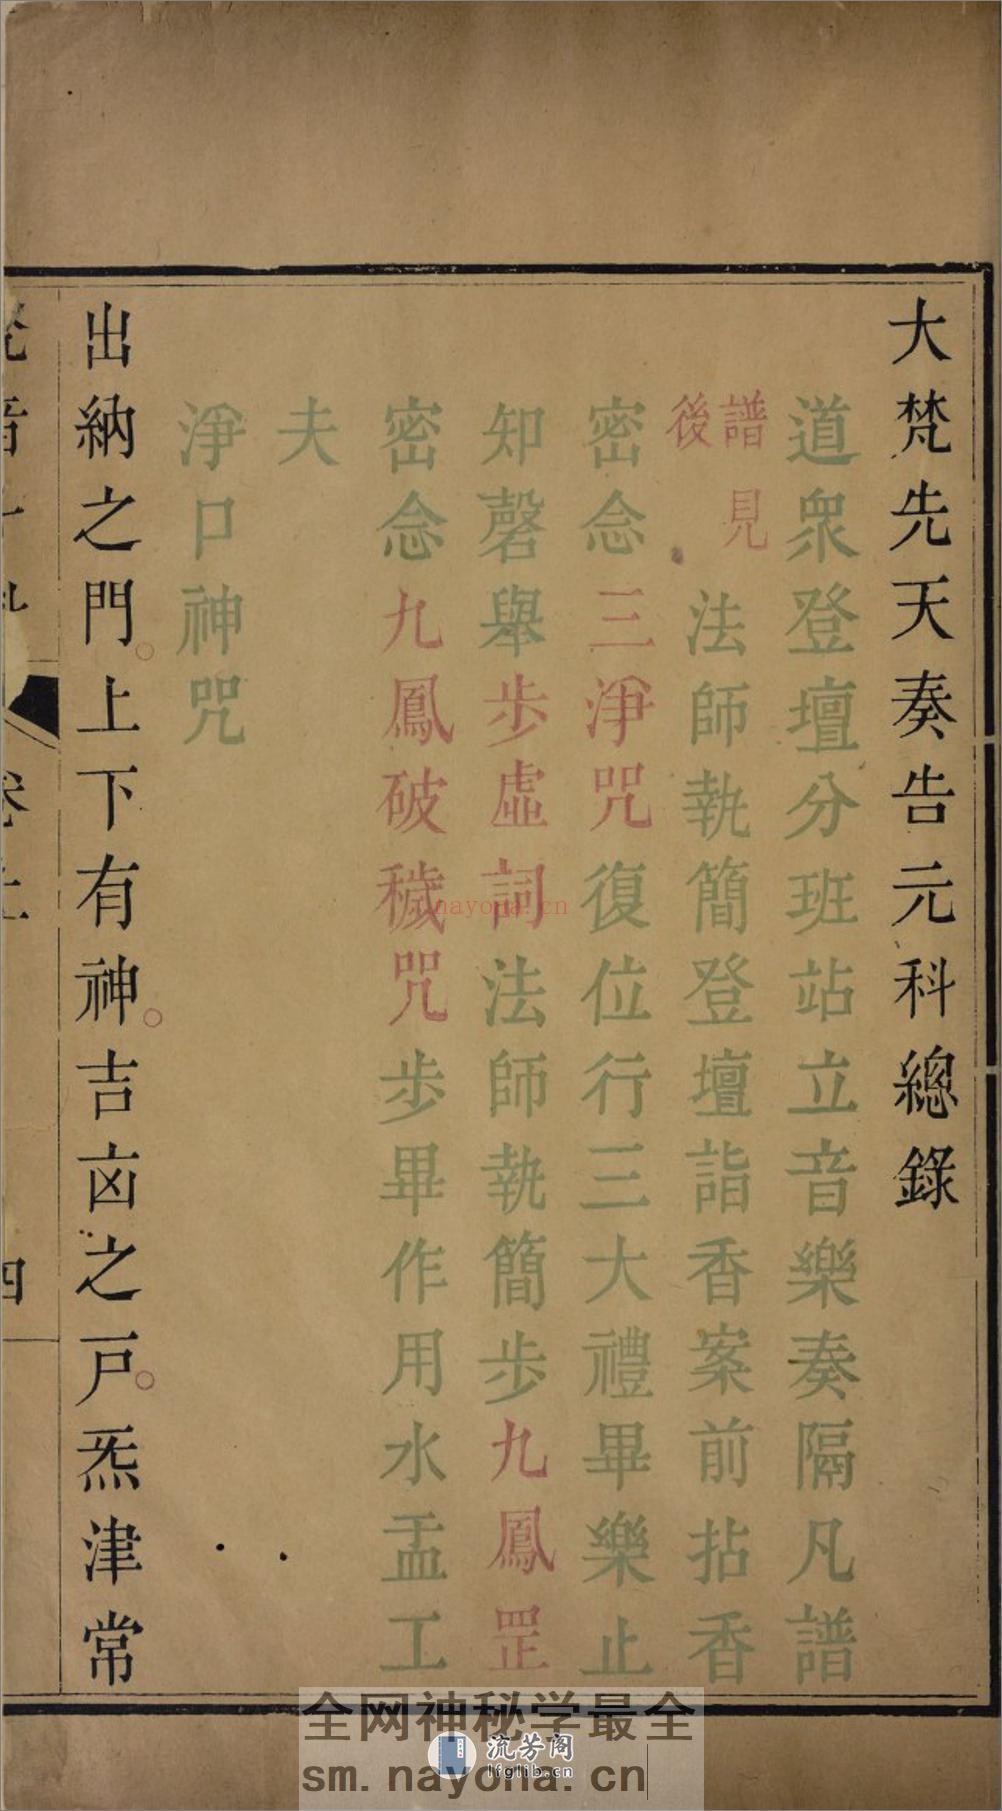 大梵先天奏告元科總錄
道衆登壇分班站立音樂奏隔凡譜
譜見
後
法師執簡登壇詣香案前拈香
密念三淨咒復位行三大禮畢樂止
知磬舉步虛詞法師執簡步九鳳罡
密念九鳳破穢咒步畢作用水盂工
夫
淨口神咒
出納之門。上下有神。吉凶之戸。炁津常
四
nayona.cn
全网神秘学最全
流芳阁
lfglib.cn
sm.nayona.cn